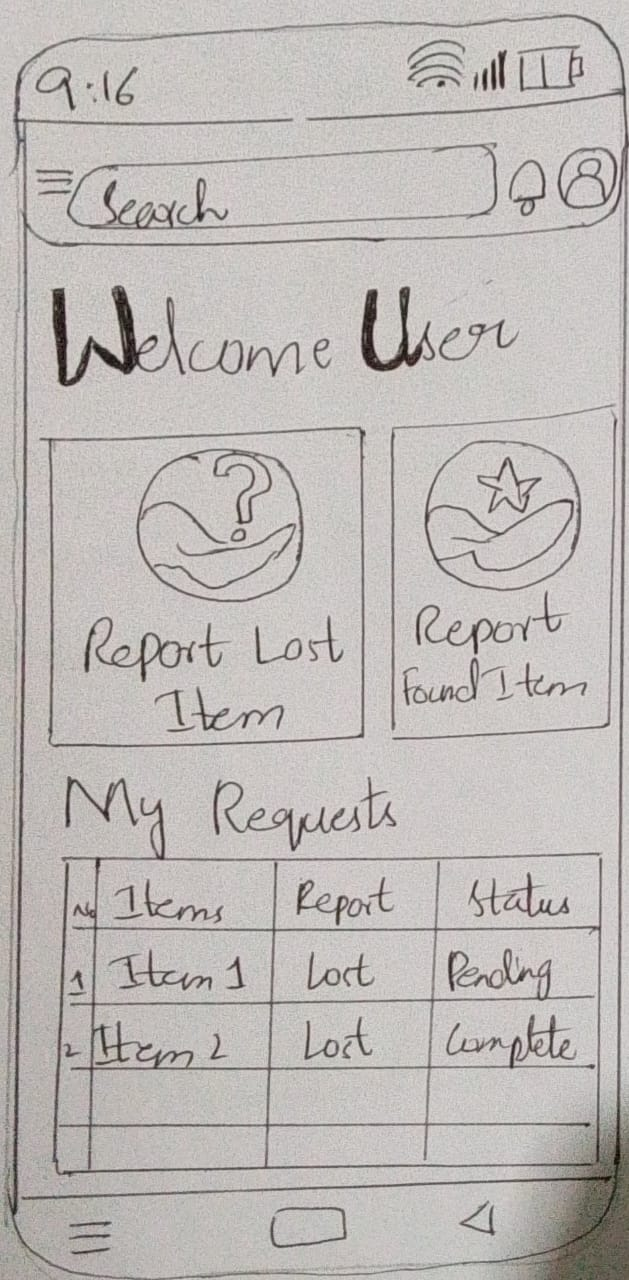 9:16
Search
Welcome User
Report Lost
Item
Report
Found Item
My Requests
No Items Report Status
1 Item 1 Lost Pending
2 Item 2 Lost Complete